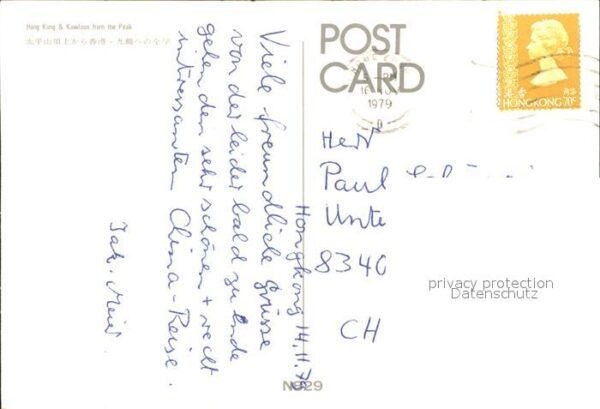 Hong Kong & Kowloon from the Peak
太平山頂上から香港・九龍への全
POST
CARD
1979
香港
HONGKONG 70c
Hongkong 14.11.79
Viele freundliche Grüsse
von der leider bald zu Ende
gehenden sehr schönen + recht
intressanten China-Reise.
Jak. Meier
Herr
Paul
Unte
8340
CH
privacy protection
Datenschutz
N929